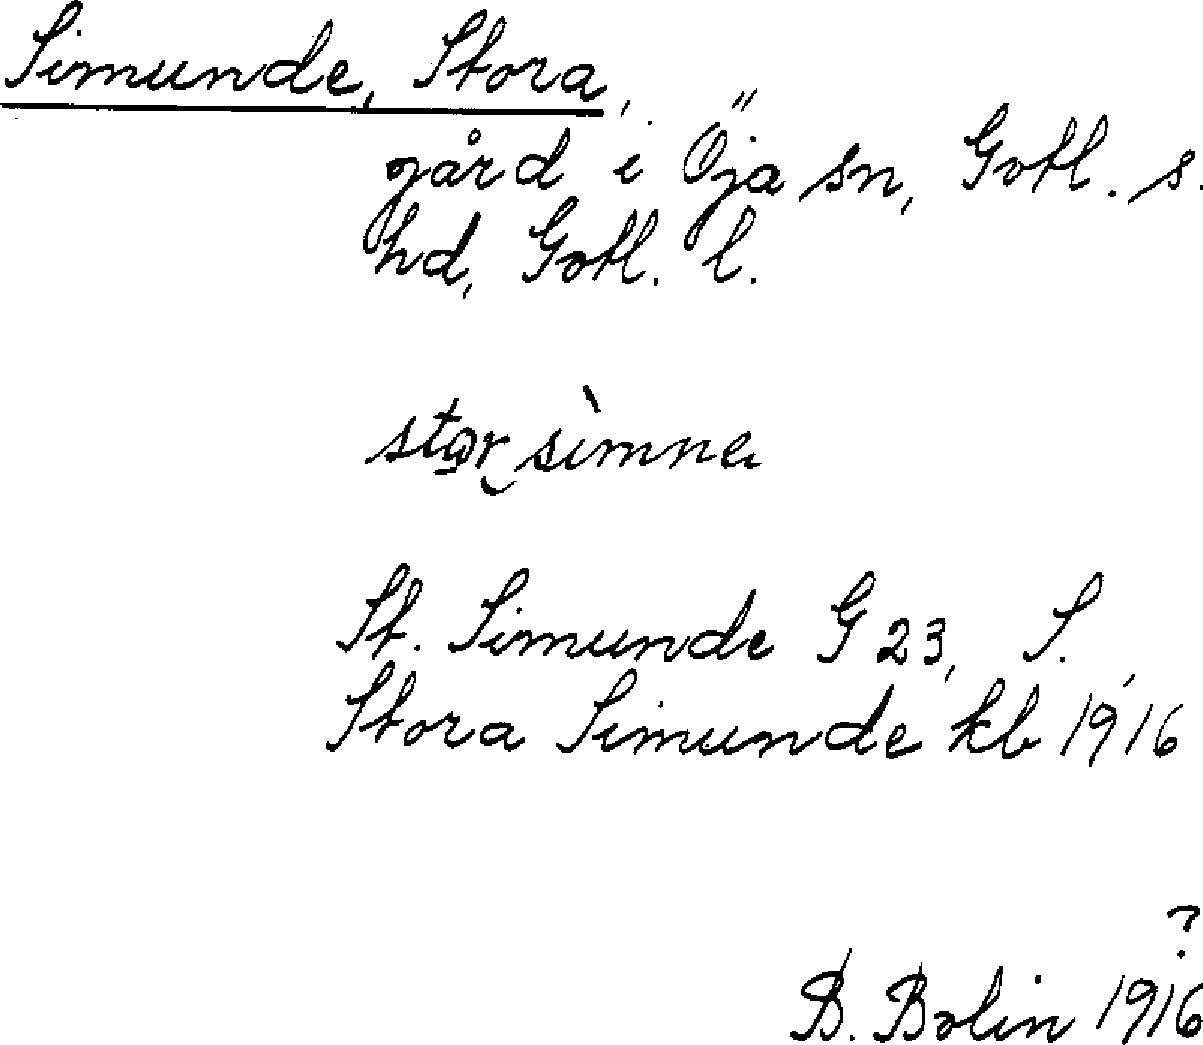 Simunde, Stora,
gård i Öja sn, Gotl. s.
hd, Gotl. l.
stor simne
St. Simunde G 23, S.
Stora Simunde kb 1916
?
B. Bolin 1916